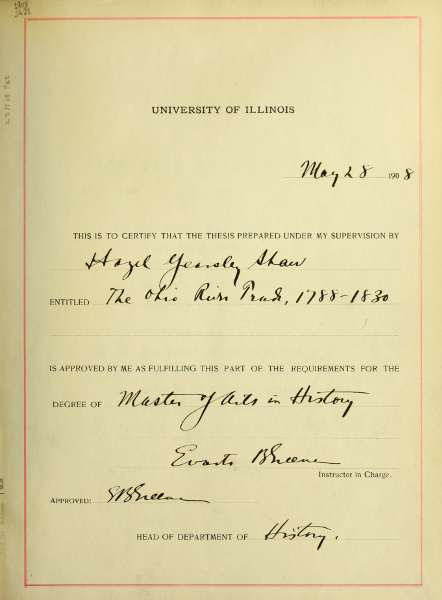 1908
Sh21
UNIVERSITY OF ILLINOIS
May 28 1908
THIS IS TO CERTIFY THAT THE THESIS PREPARED UNDER MY SUPERVISION BY
Hazel Yearsley Shaw
ENTITLED The Ohio River Trade, 1788-1830
IS APPROVED BY ME AS FULFILLING THIS PART OF THE REQUIREMENTS FOR THE
DEGREE OF Master of Arts in History
Evarts B Greene
Instructor in Charge.
APPROVED: EBGreene
HEAD OF DEPARTMENT OF History.